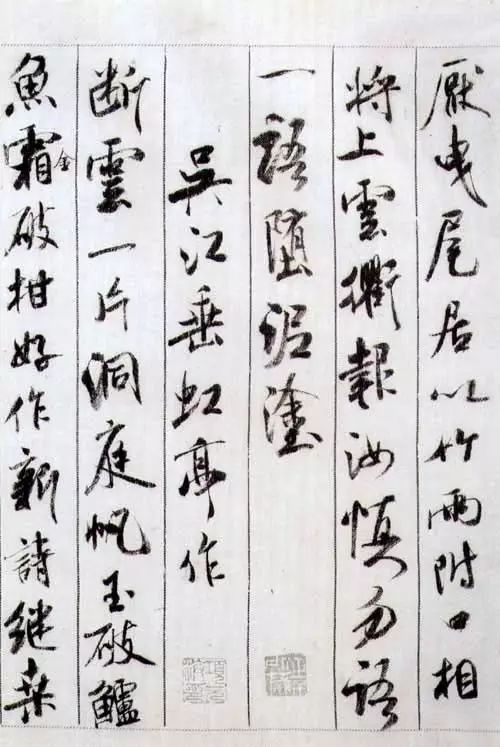 厭曳尾居以竹兩附口相
将上雲衢報汝慎勿語
一語堕泥塗
吳江垂虹亭作
断雲一片洞庭帆玉破鱸
魚霜金破柑好作新詩继桒